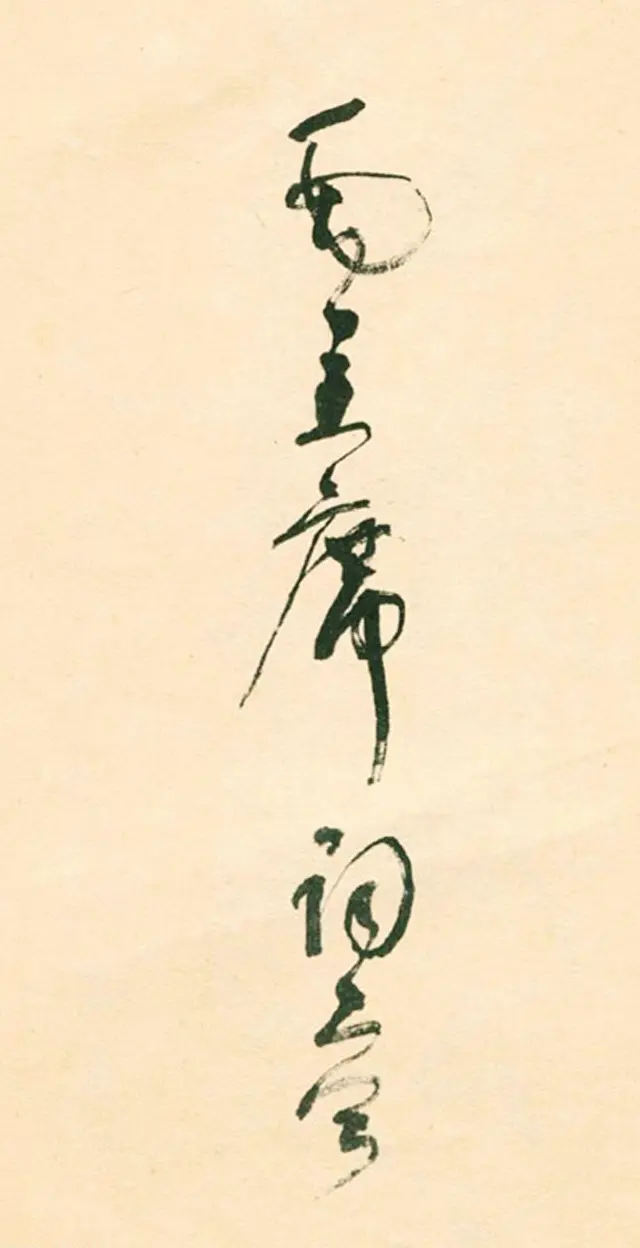 毛主席词二首